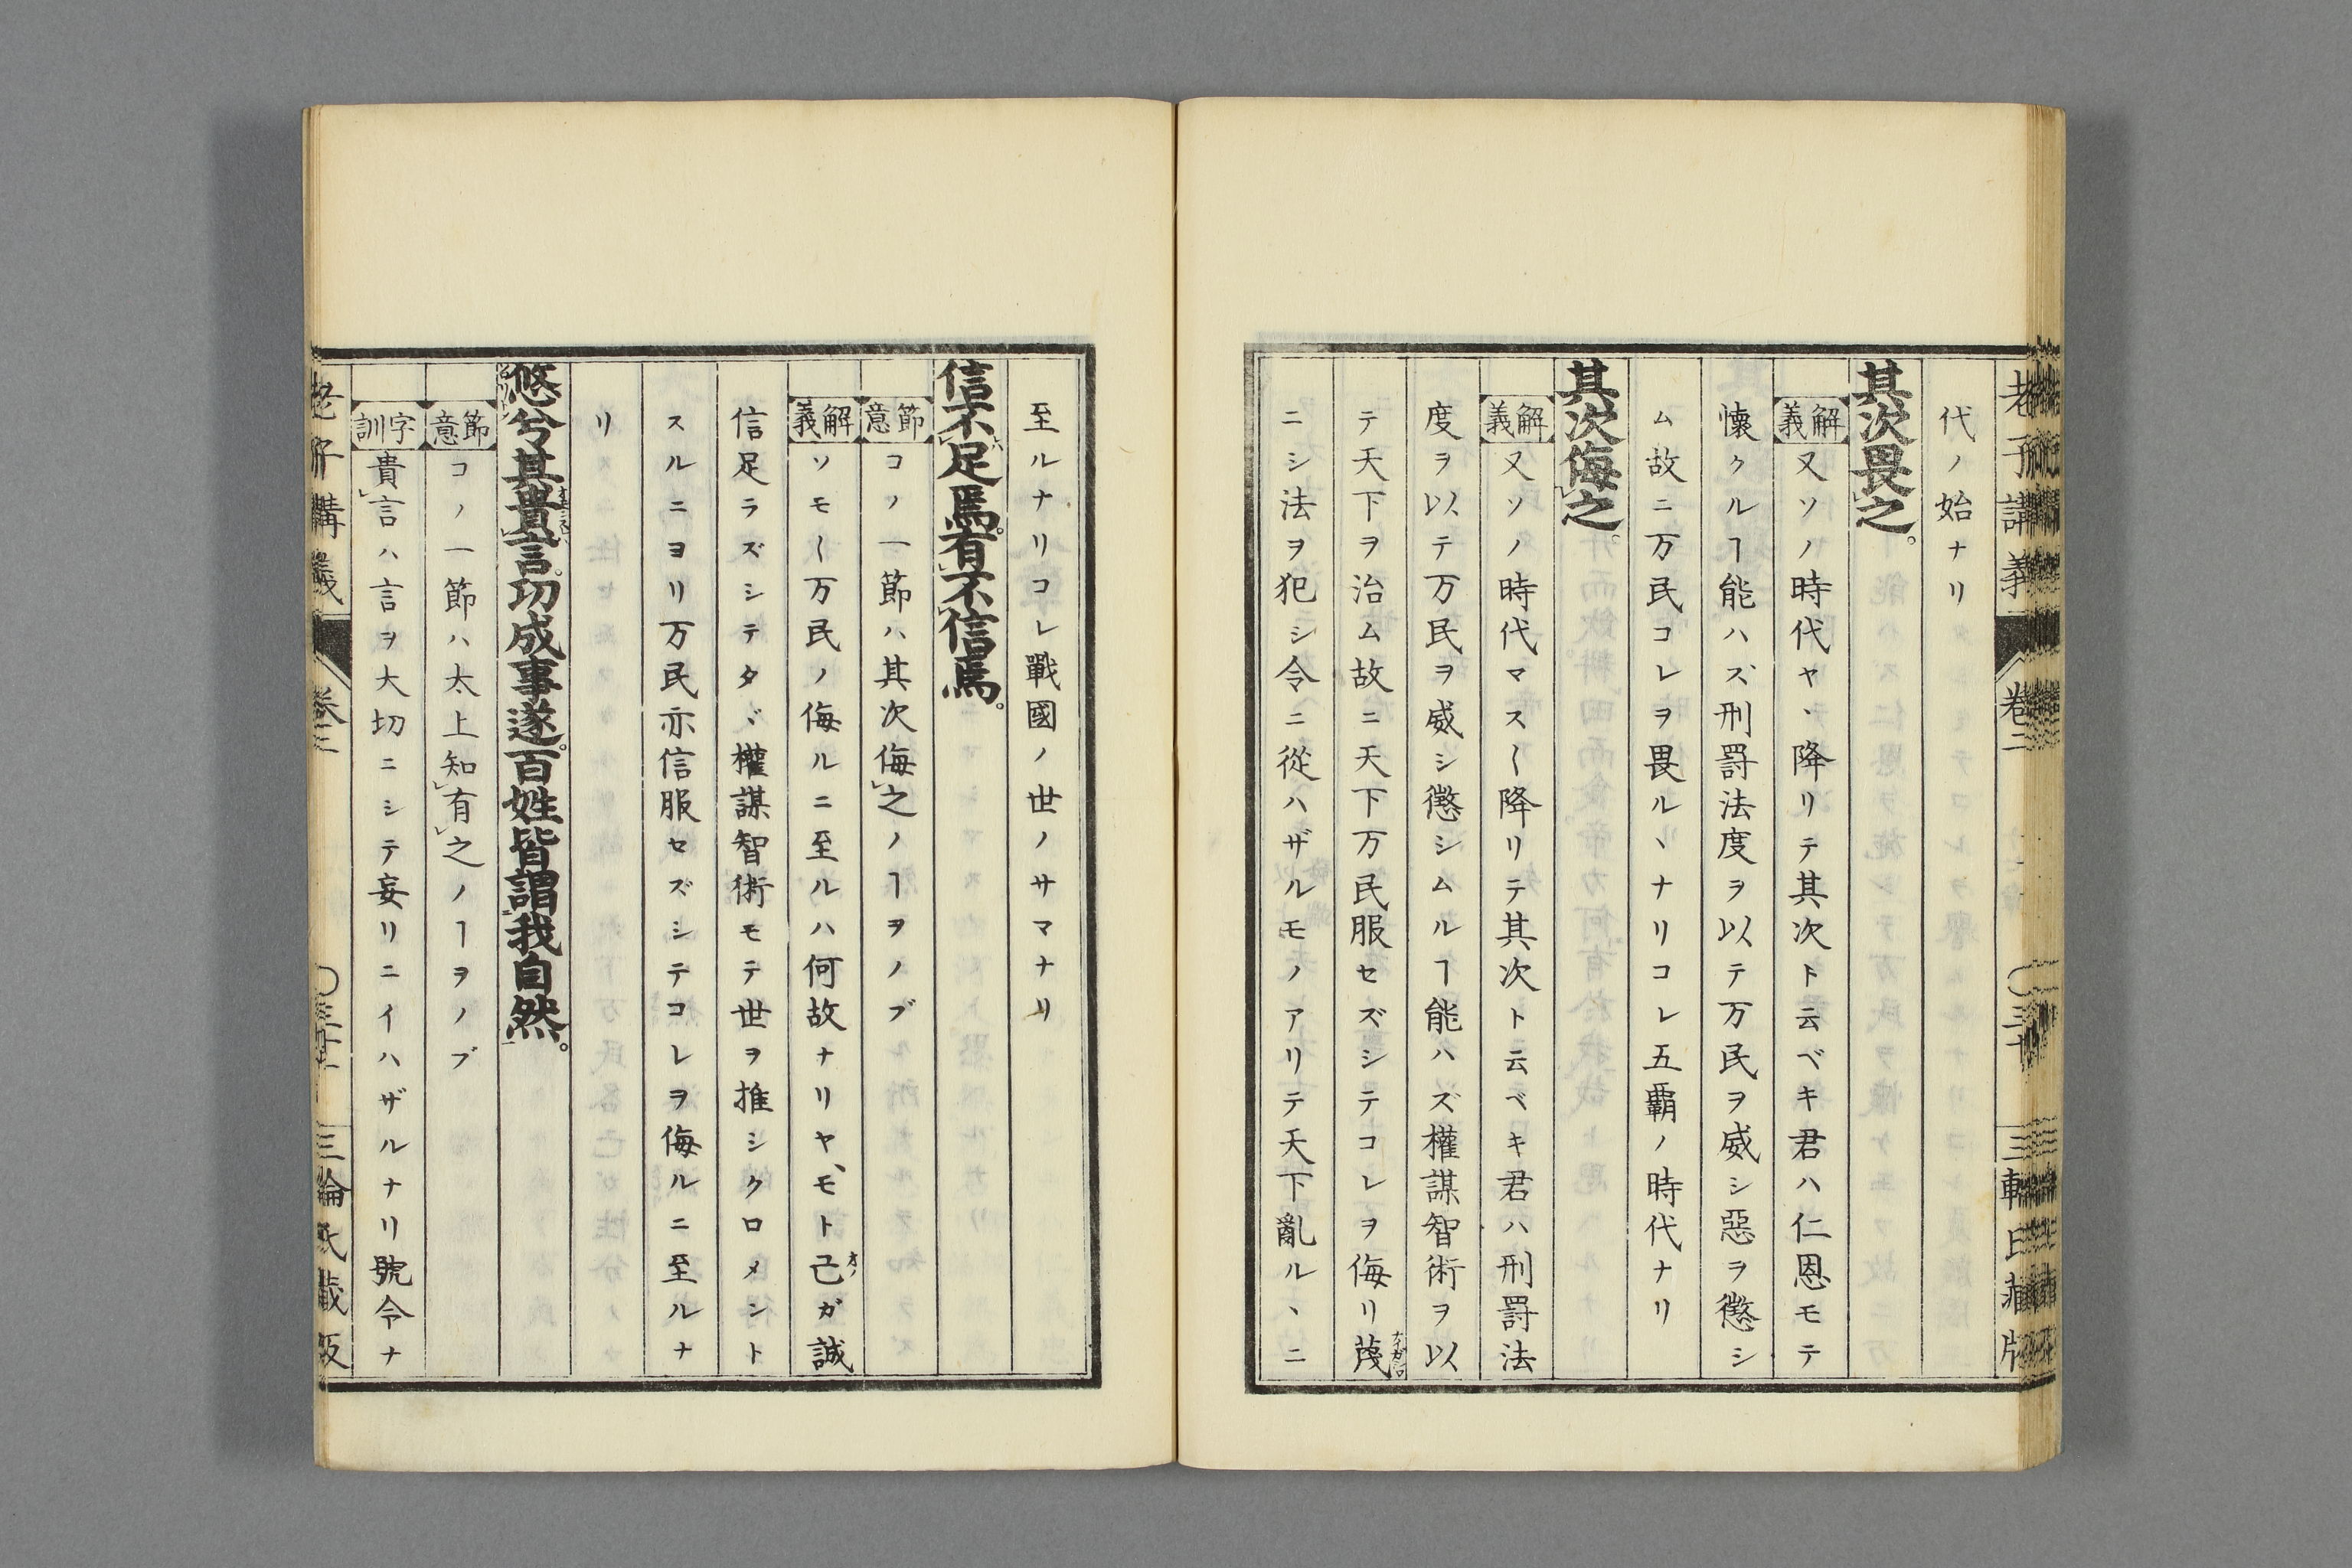 代ノ始ナリ
其次畏之。
解義 又ソノ時代ヤヽ降リテ其次ト云ベキ君ハ仁恩モテ
懷クルヿ能ハズ刑罸法度ヲ以テ万民ヲ威シ惡ヲ懲シ
ム故ニ万民コレヲ畏ルヽナリコレ五覇ノ時代ナリ
其次侮之。
解義 又ソノ時代マス〳〵降リテ其次ト云ベキ君ハ刑罸法
度ヲ以テ万民ヲ威シ懲シムルヿ能ハズ權謀智術ヲ以
テ天下ヲ治ム故ニ天下万民服セズシテコレヲ侮リ蔑
ニシ法ヲ犯シ令ニ從ハザルモノアリテ天下亂ルヽニ
老子講義 卷二 〇三十 三輪氏藏版
至ルナリコレ戰國ノ世ノサマナリ
信不足焉。有不信焉。
節意 コノ一節ハ其次侮之ノヿヲノブ
解義 ソモ〳〵万民ノ侮ルニ至ルハ何故ナリヤ、モト己ガ誠
信足ラズシテタヾ權謀智術モテ世ヲ推シクロメント
スルニヨリ万民亦信服セズシテコレヲ侮ルニ至ルナ
リ
悠兮其貴言。功成事遂。百姓皆謂我自然。
節意 コノ一節ハ太上知有之ノヿヲノブ
字訓 貴言ハ言ヲ大切ニシテ妄リニイハザルナリ號令ナ
老子講義 卷二 三輪氏藏版